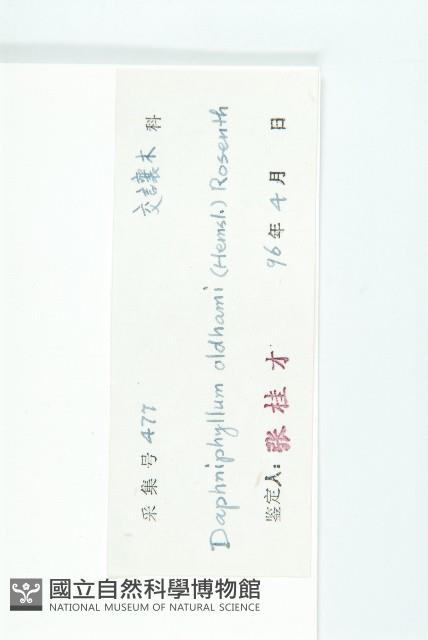 采集号 477 交讓木 科
Daphniphyllum oldhami (Hemsl.) Rosenth
鉴定人: 张桂才 96年4月 日
國立自然科學博物館
NATIONAL MUSEUM OF NATURAL SCIENCE